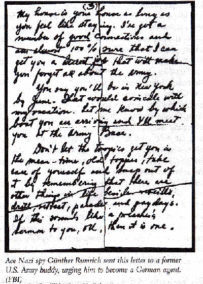 (3)
My home is your home as long as
you feel like staying. I've got a
number of good connections and
am almost 100% sure that I can
get you a decent job that will make
you forget all about the Army.
You say you'll be in New York
by June. That would coincide with
my vacation. Let me know by which
boat you are arriving and I'll meet
you at the Army Base.
Don't let the tropics get you in
the mean-time, old topics, take
care of yourself and snap out of
it by remembering that there are
other things
drill, retreat, parades and paydays.
If this sounds like a preacher's
sermon to you, OK, then it is one.
Ace Nazi spy Günther Rumrich sent this letter to a former
U.S. Army buddy, urging him to become a German agent.
(FBI)